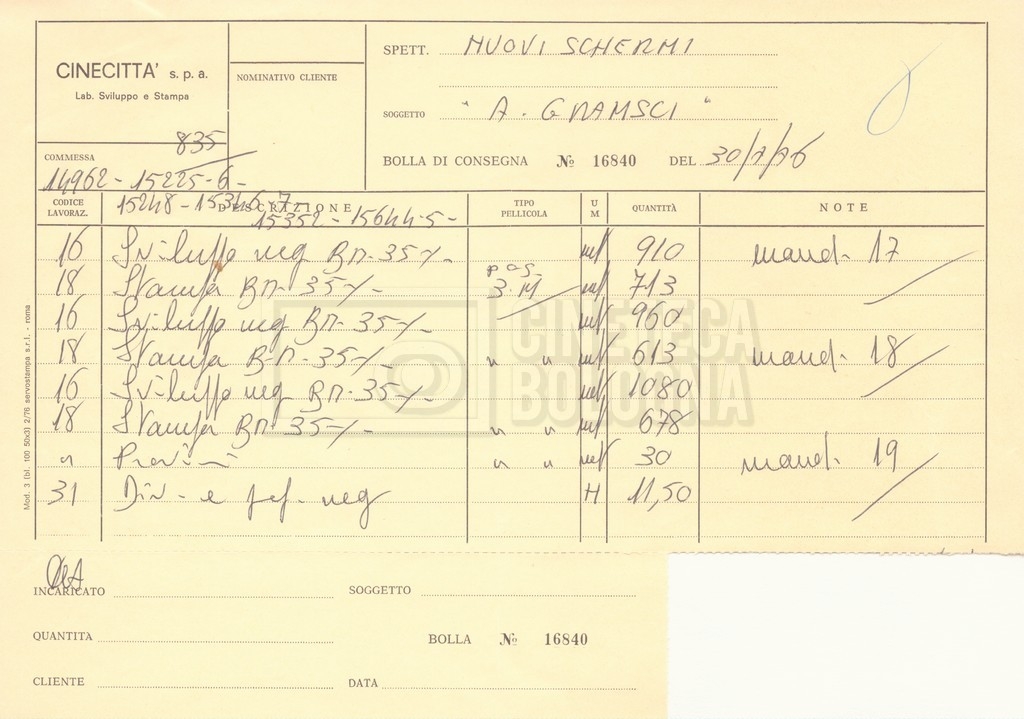 CINECITTA' s. p. a.
Lab. Sviluppo e Stampa
NOMINATIVO CLIENTE
SPETT. NUOVI SCHERMI
SOGGETTO "A. GRAMSCI"
BOLLA DI CONSEGNA No 16840 DEL 30/7/76
835
COMMESSA
14962 - 15225-6-
15248 - 15346-7-
15352 - 15644-5-
CODICE LAVORAZ. DESCRIZIONE TIPO PELLICOLA U M QUANTITÀ NOTE
16 Sviluppo neg BN-35 m/m - mt 910 mand. 17
18 Stampa BN-35 m/m - pos. 3.M mt 713
16 Sviluppo neg BN-35 m/m - mt 960
18 Stampa B.N-35 m/m - " " mt 613 mand. 18
16 Sviluppo neg BN-35 m/m - mt 1080
18 Stampa BN 35 m/m - " " mt 678
" Provini " " mt 30 mand. 19
31 Div - e neg H 11,50
CINETECA
BOLOGNA
Mod. 3 (bl. 100 50x3) 2/76 servostampa s.r.l. - roma
INCARICATO SOGGETTO
QUANTITA BOLLA No 16840
CLIENTE DATA